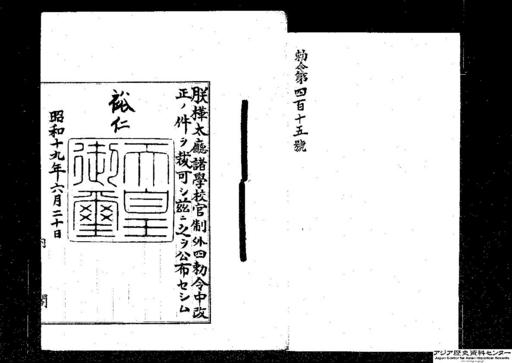 勅令第四百十五號
朕樺太廳諸學校官制外四勅令中改
正ノ件ヲ裁可シ茲ニ之ヲ公布セシム
裕仁
天皇
御璽
昭和十九年六月二十日
アジア歴史資料センター